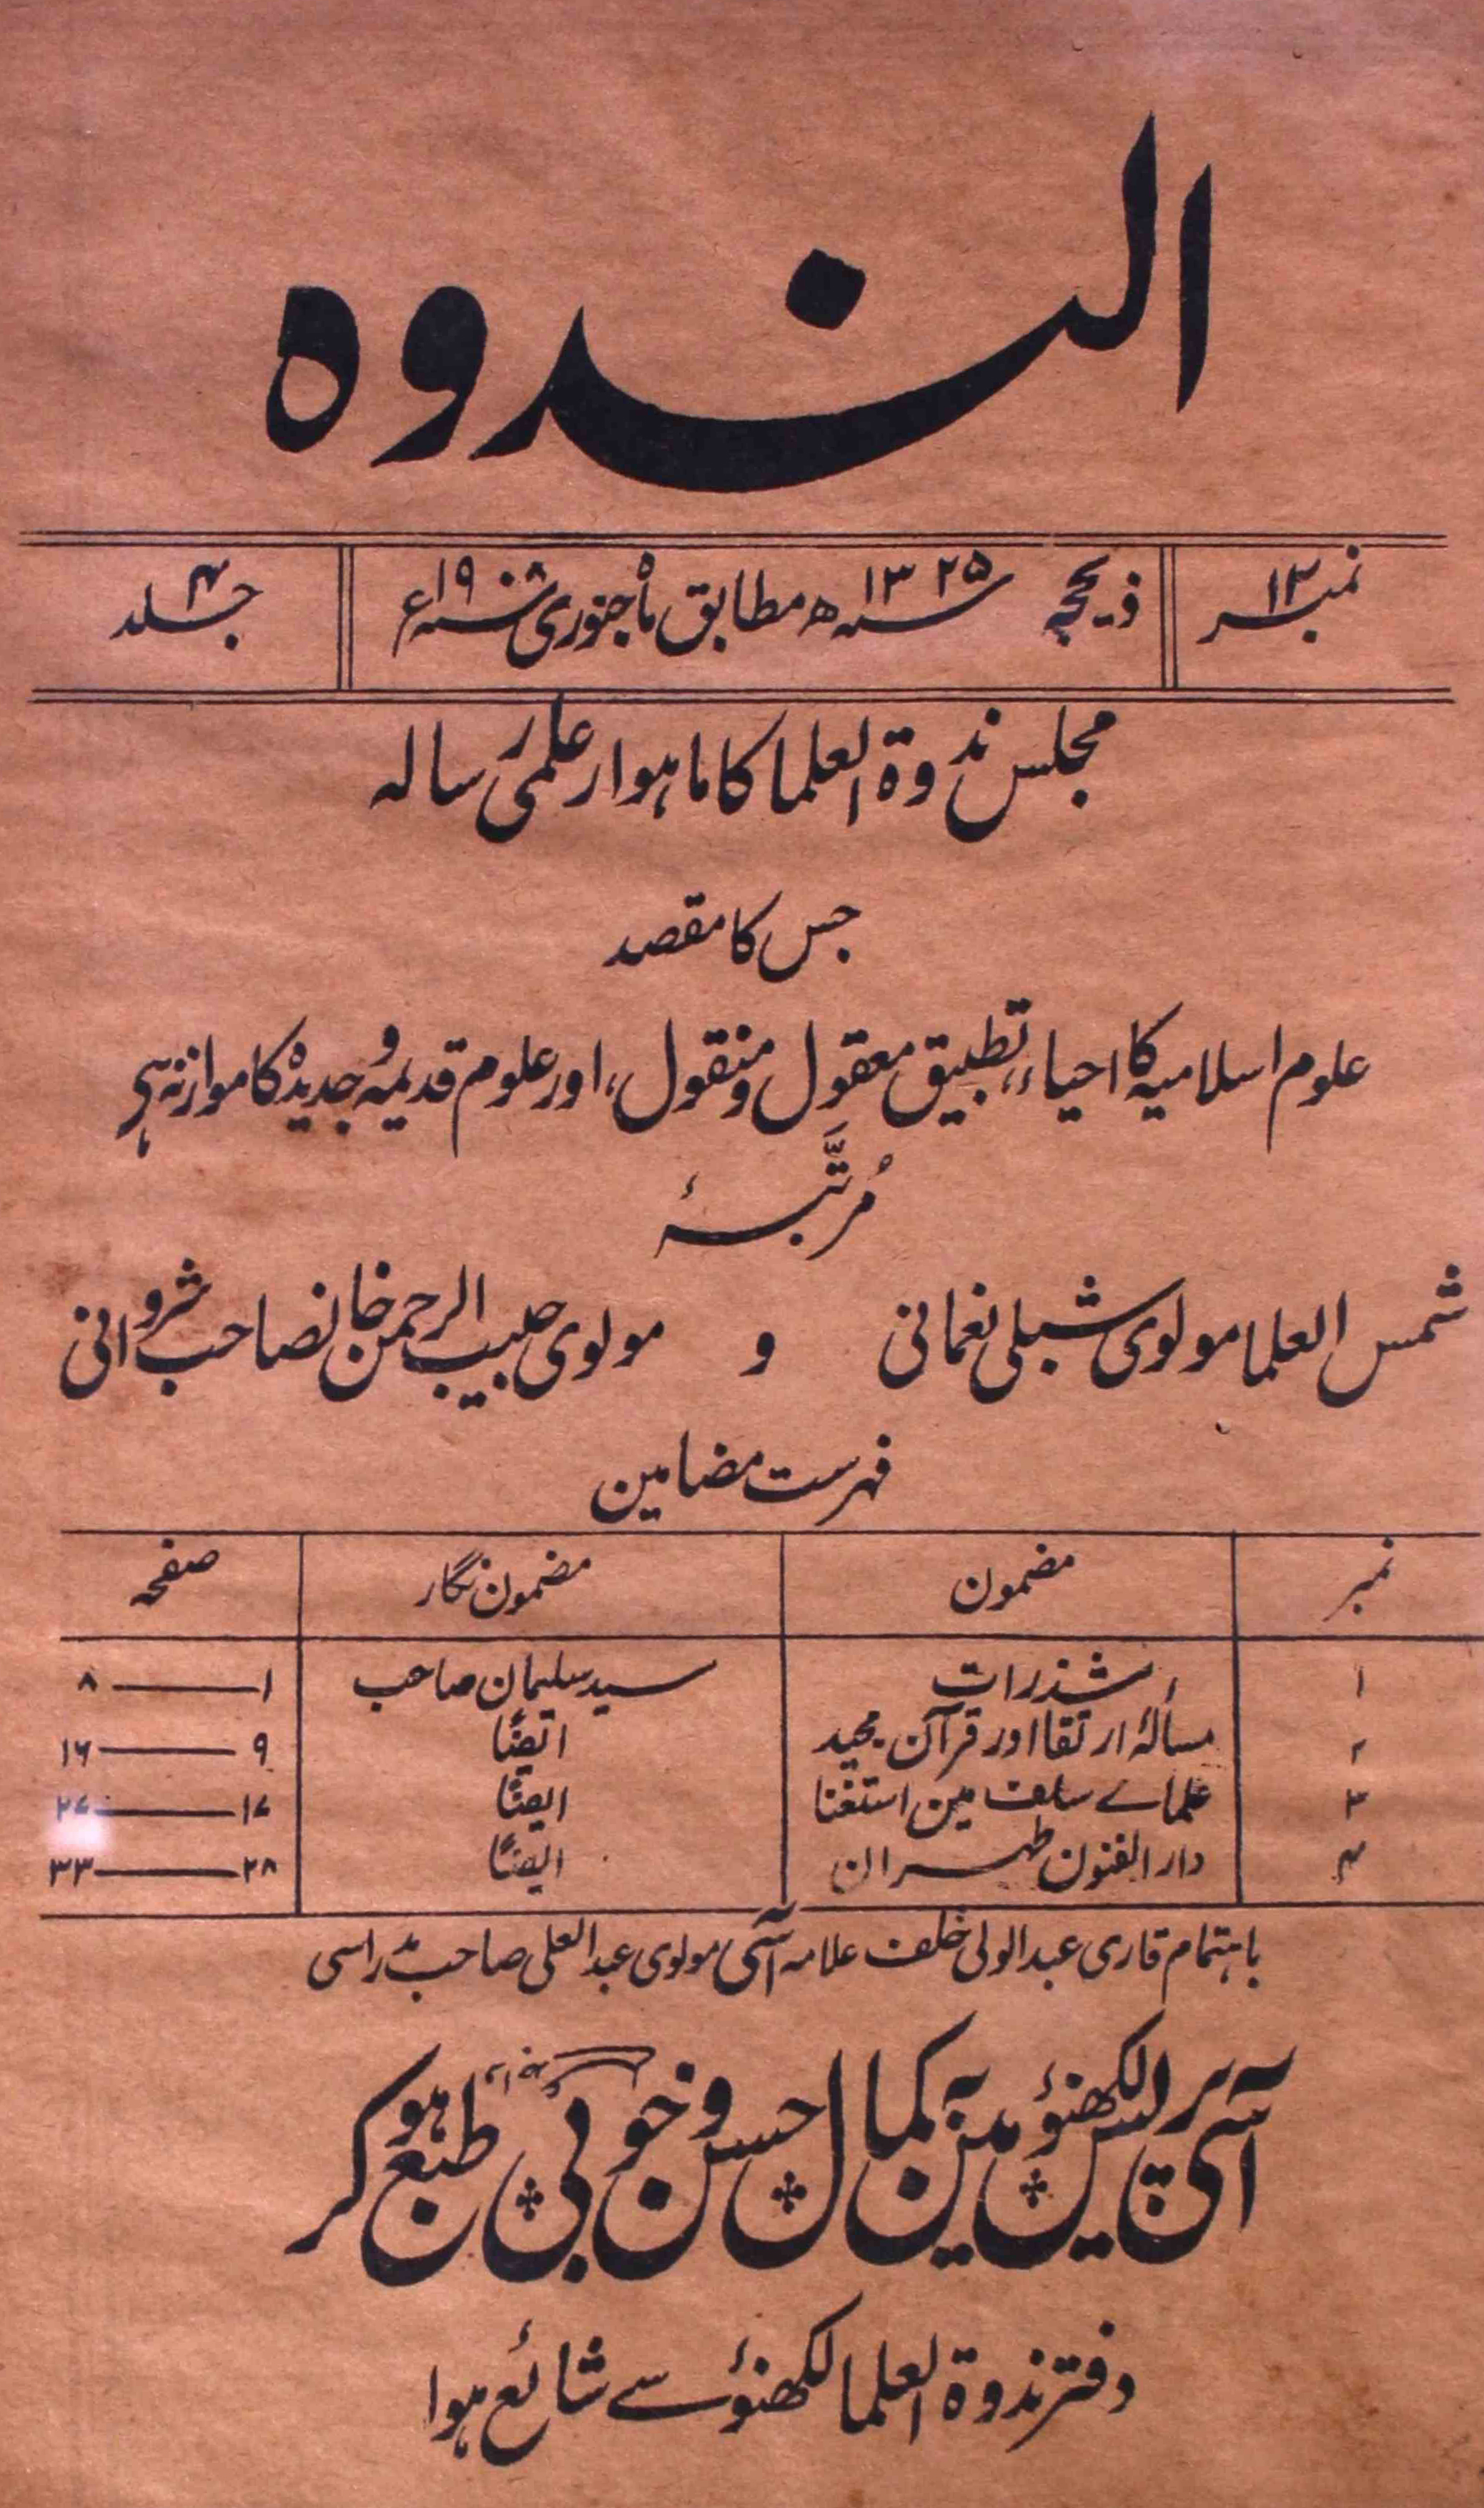 الندوہ
نمبر ۱۲ ذیحجہ ۱۳۲۵ ھ مطابق ماہ جنوری ۱۹۰۸ء جلد ۴
مجلس ندوۃ العلما کا ماہوار علمی رسالہ
جس کا مقصد
علوم اسلامیہ کا احیاء، تطبیق معقول و منقول، اور علوم قدیمہ و جدیدہ کا موازنہ ہی
مُرتَّبۂ
شمس العلما مولوی شبلی نعمانی و مولوی حبیب الرحمن خانصاحب شروانی
فہرست مضامین
نمبر مضمون مضمون نگار صفحہ
۱ شذرات سید سلیمان صاحب ۱ — ۸
۲ مسألۂ ارتقا اور قرآن مجید ایضًا ۹ — ۱۶
۳ علمائے سلف مین استغنا ایضًا ۱۷ — ۲۷
۴ دار الفنون طہران ایضًا ۲۸ — ۳۳
باہتمام قاری عبدالولی خلف علامہ آسی مولوی عبدالعلی صاحب مدراسی
آسی پریس لکھنؤ مین بہ کمال حسن و خوبی طبع ہو کر
دفتر ندوۃ العلما لکھنؤ سے شائع ہوا